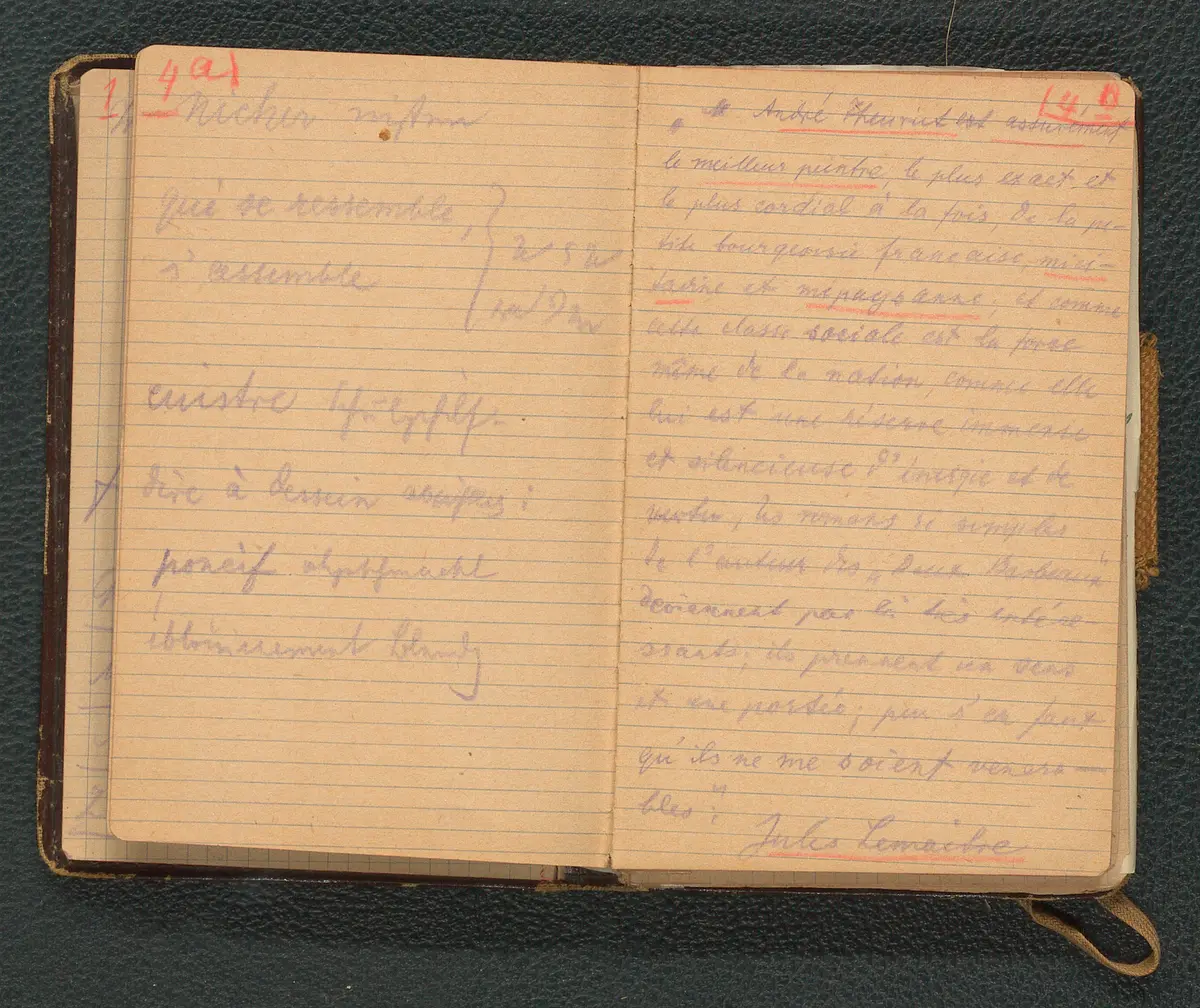 4a)
Nicher nisten
qui se ressemble,
s'assemble
cuistre
dire à dessein
poncif abgeschmackt
éblouissement
(4, b
" André Theuriet est assurément
le meilleur peintre, le plus exact et
le plus cordial à la fois, de la pe-
tite bourgeoisie française, mici-
tadine et mipaysanne; et comme
cette classe sociale est la force
même de la nation, comme elle
lui est une réserve immense
et silencieuse d'énergie et de
vertu, les romans si simples
de l'auteur des "Deux Barbeaux"
deviennent par là très intére-
ssants; ils prennent un sens
et une portée; peu s'en faut
qu'ils ne me soient vénéra-
bles."
Jules Lemaître